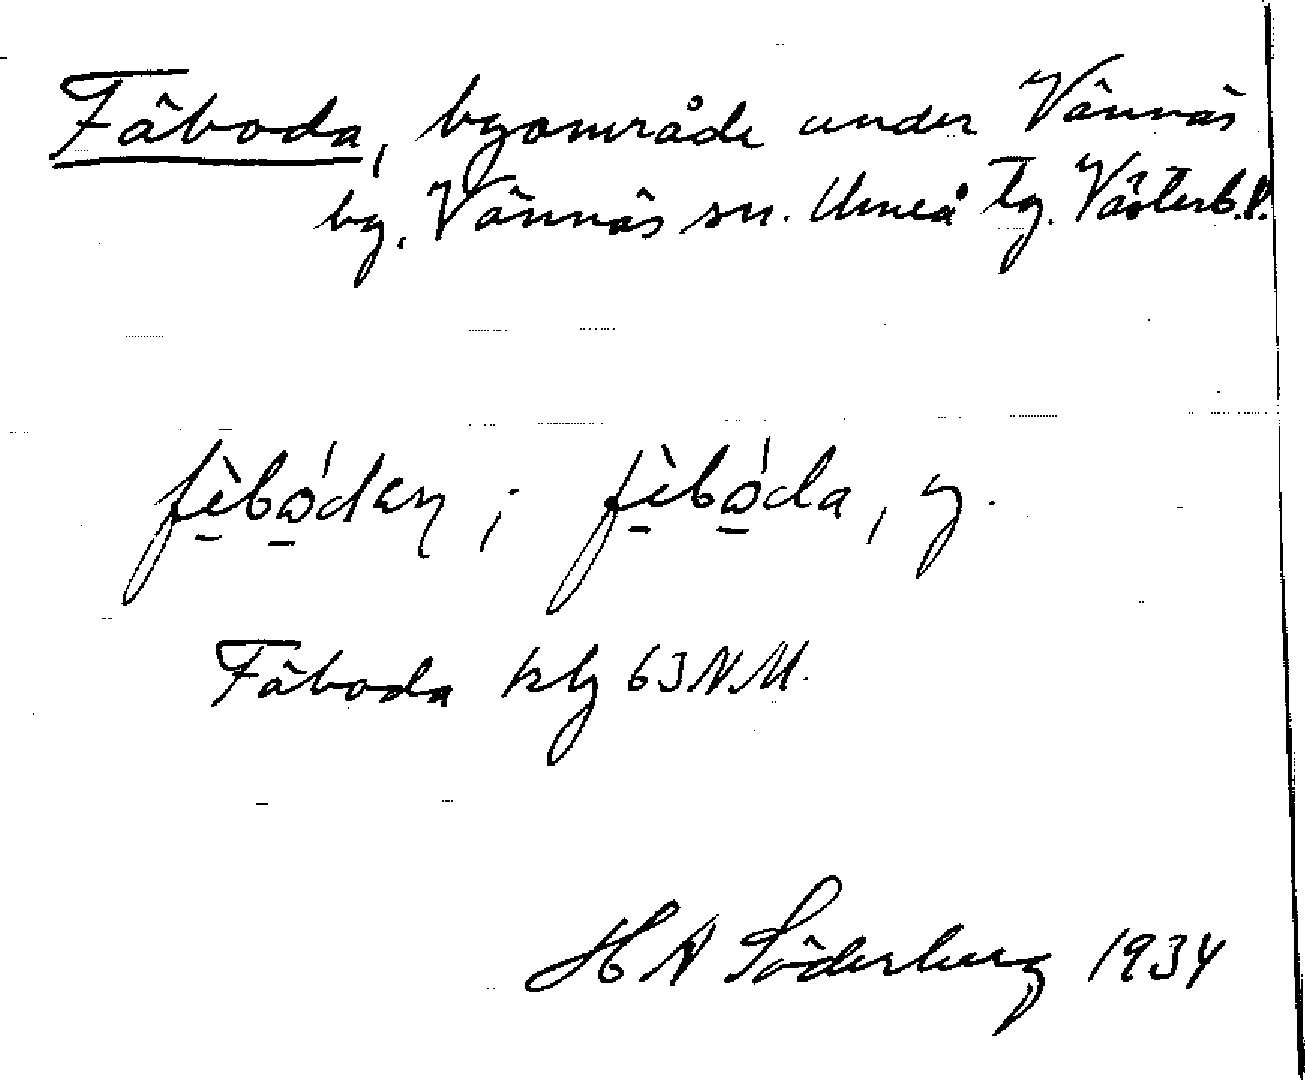 Fäboda, byområde under Vännäs
by, Vännäs sn. Umeå tg. Västerb. l.
Fäboda kbg 63 N.M.
H A Söderberg 1934